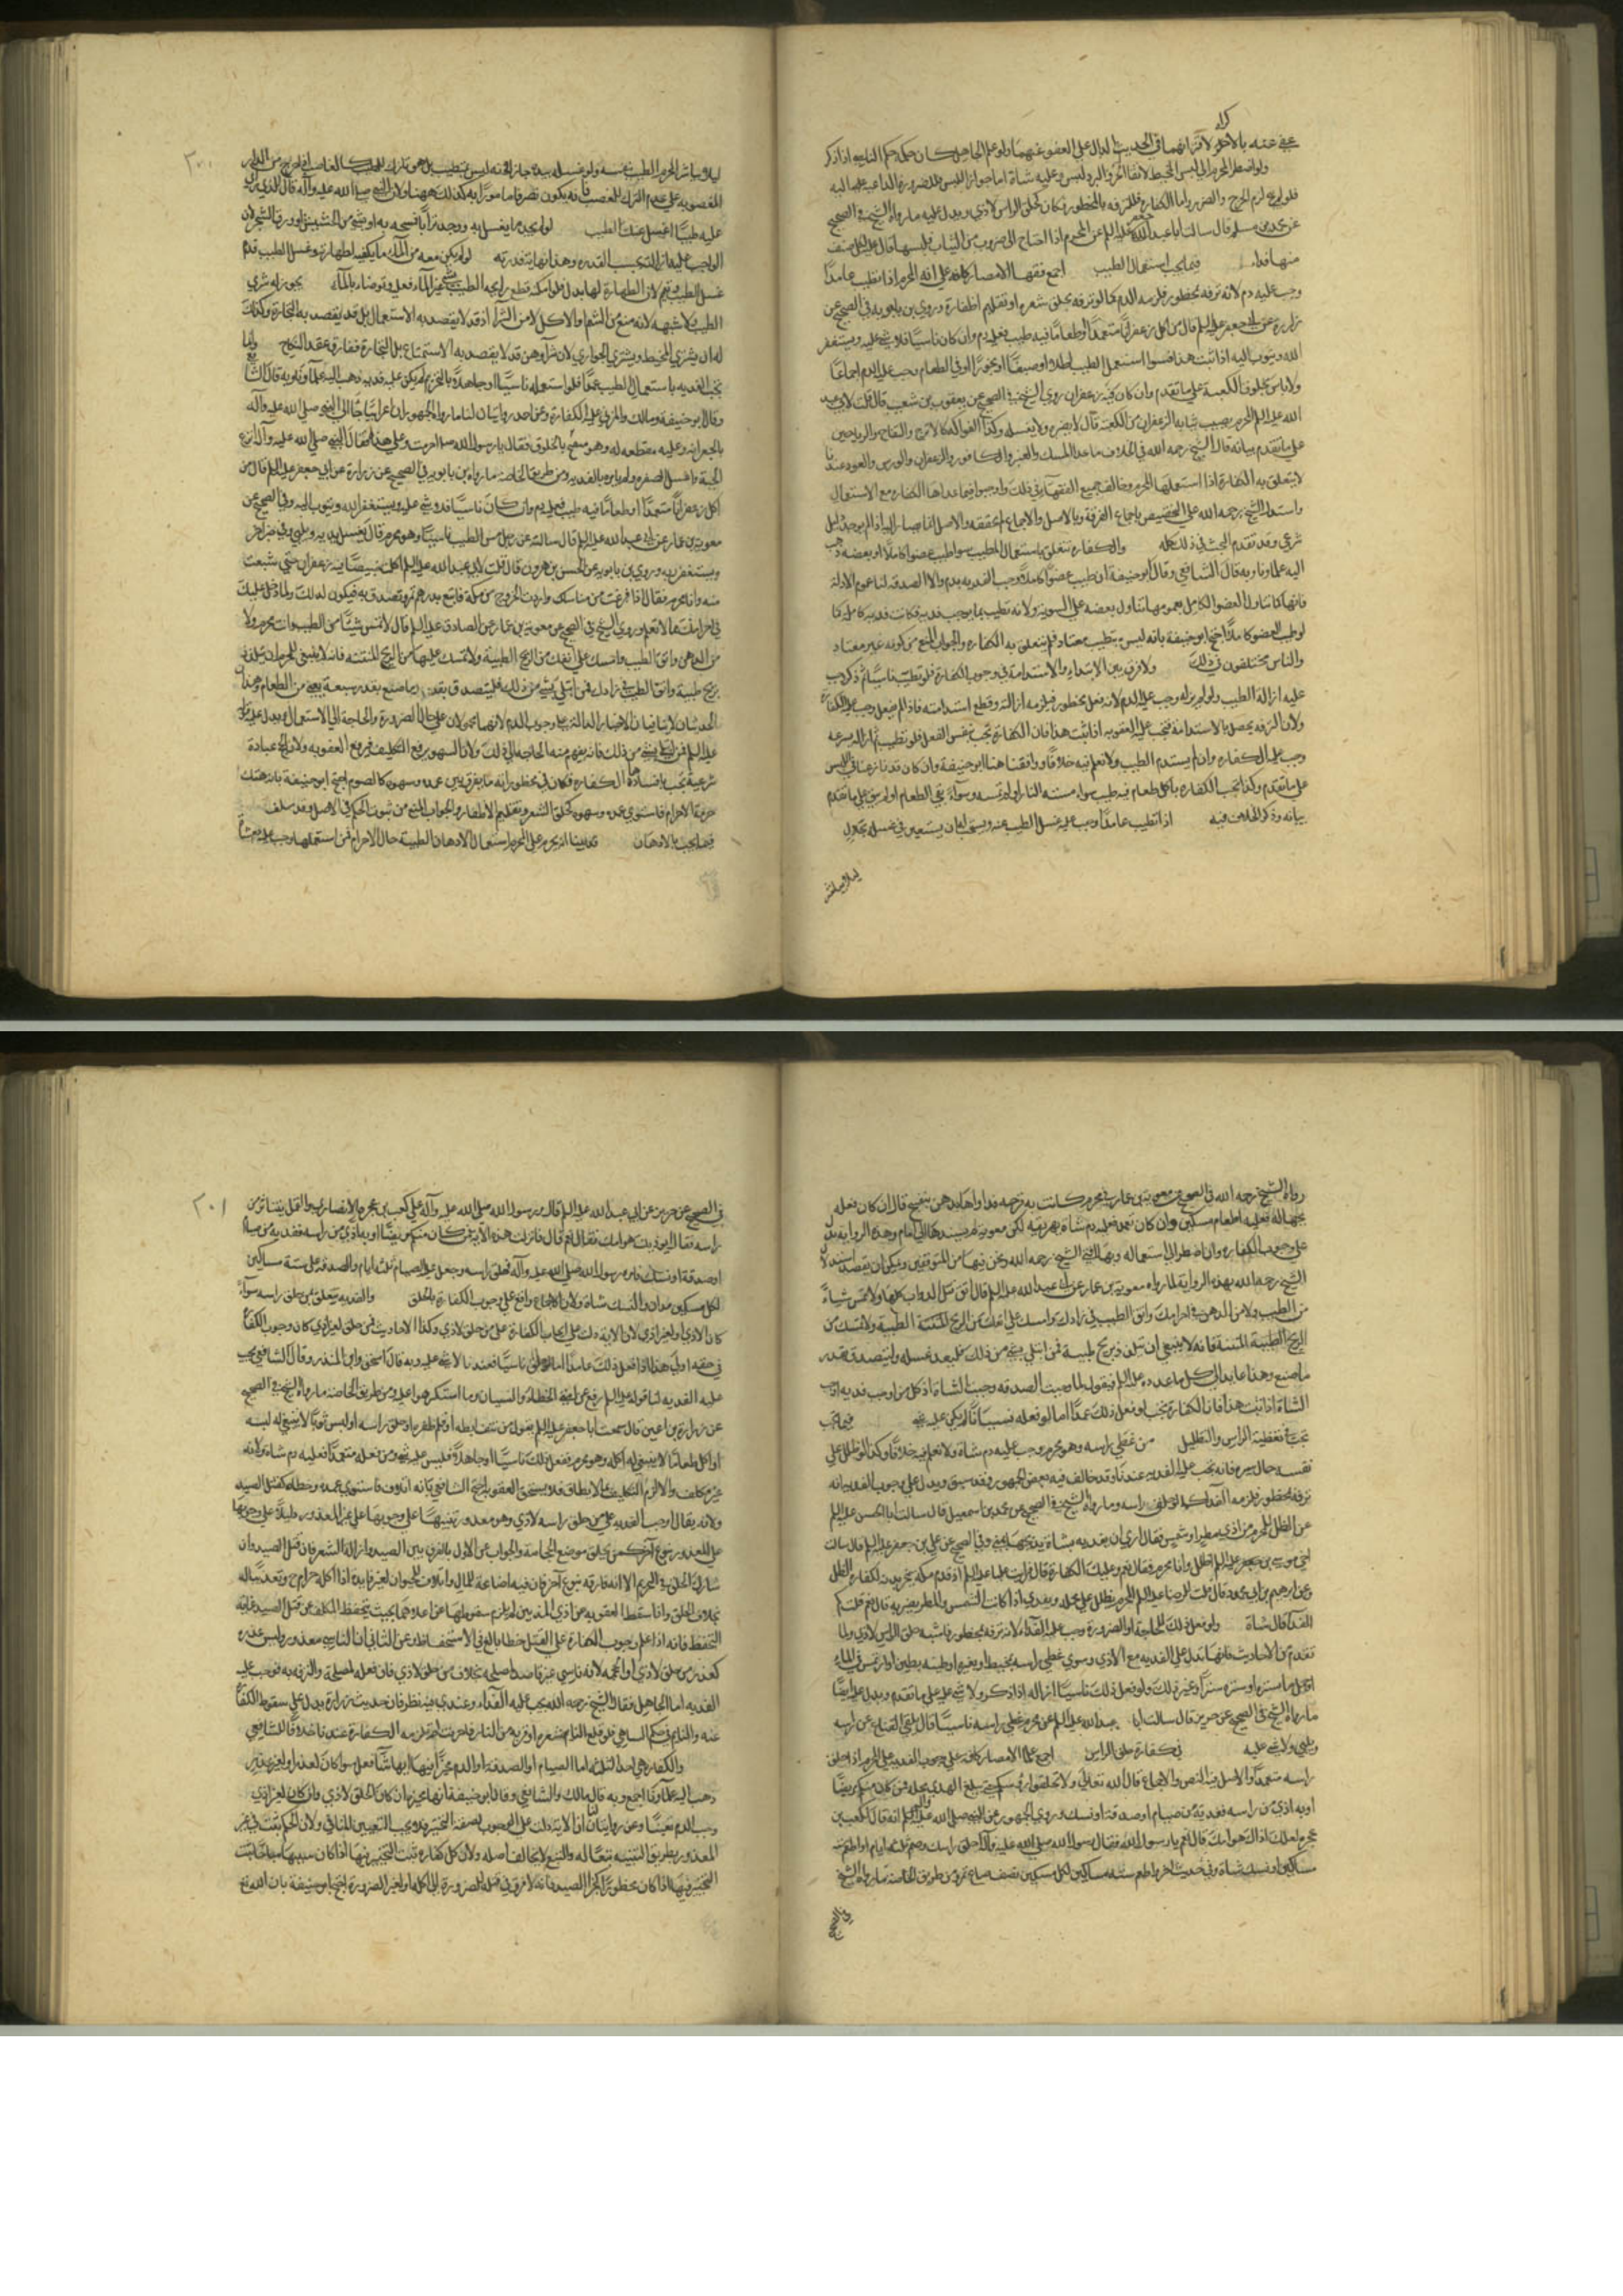 عفي عنه بالاخر لاقترانهما في الحديث الدال على العفو عنهما ولو علم الجاهل كان حكمه حكم الناسي اذا ذكر
ولو اضطر المحرم الى لبس المخيط لاتقاء الحر والبرد لبس وعليه شاة اما جواز اللبس فللضرورة الداعية اليه
فلو لم يلزم الحرج والضرر واما الكفارة فللترفه بالمحظور فكان كحلق الراس لاذى ويدل عليه ما رواه الشيخ في الصحيح
عن محمد بن مسلم قال سالت ابا عبد الله عليه السلم عن المحرم اذا احتاج الى ضروب من الثياب فلبسها قال عليه لكل صنف
منها فداء فيما يجب استعمال الطيب اجمع فقهاء الامصار كافة على انه المحرم اذا تطيب عامدا
وجب عليه دم لانه ترفه بمحظور فلزمه الدم كما لو ترفه بحلق شعره او تقليم اظفاره وروى بن بابويه في الصحيح عن
زرارة عن ابي جعفر عليه السلم قال من اكل زعفرانا متعمدا او طعاما فيه طيب فعليه دم وان كان ناسيا فلا شيء عليه ويستغفر
الله ويتوب اليه اذا ثبت هذا فسواء استعمل الطيب اطلاء او صبغا او بخورا او في الطعام وجب عليه الدم اجماعا
ولا باس بخلوق الكعبة على ما تقدم وان كان فيه زعفران روى الشيخ في الصحيح عن يعقوب بن شعيب قال قلت لابي عبد
الله عليه السلم المحرم يصيب ثيابه الزعفران من الكعبة قال لا يضره ولا يغسله وكذا الفواكه كالاترج والتفاح والرياحين
على ما تقدم بيانه قال الشيخ رحمه الله في الخلاف ما عدا المسك والعنبر والكافور والزعفران والورس والعود عندنا
لا يتعلق به الكفارة اذا استعملها المحرم وخالف جميع الفقهاء في ذلك واوجبوا فيما عداها الكفارة مع الاستعمال
واستدل الشيخ رحمه الله على التخصيص باجماع الفرقة وبالاصل والاجماع لم نحققه والاصل انما يصار اليه اذا لم يوجد دليل
شرعي وقد تقدم البحث في ذلك كله والكفارة تتعلق باستعمال المطيب سواء طيب عضوا كاملا او بعضه ذهب
اليه علماؤنا وبه قال الشافعي وقال ابو حنيفة ان طيب عضوا كاملا وجب الفدية بدم والا الصدقة لنا عموم الادلة
فانها كما تتناول العضو الكامل بعمومها تتناول بعضه على السوية ولانه تطيب بما يوجب فدية فكانت فدية كاملة كما
لو طيب العضو كاملا احتج ابو حنيفة بانه ليس بتطيب معتاد فلم يتعلق به الكفارة والجواب المنع من كونه غير معتاد
والناس مختلفون في ذلك ولا فرق بين الابتداء والاستدامة في وجوب الكفارة فلو تطيب ناسيا ثم ذكر وجب
عليه ازالة الطيب ولو لم يزله وجب عليه الدم لانه فعل محظور فيلزمه ازالته وقطع استدامته فاذا لم يفعل وجب عليه الكفارة
ولان الترفه يحصل بالاستدامة فيجب عليه العقوبة اذا ثبت هذا فان الكفارة تجب بنفس الفعل فلو تطيب ثم ازاله بسرعة
وجب عليه الكفارة وان لم يستدم الطيب ولا نعلم فيه خلافا ووافقنا هنا ابو حنيفة وان كان قد نازعنا في اللبس
على ما تقدم وكذا تجب الكفارة باكل طعام فيه طيب سواء مسته النار او لم تمسه وسواء بقي الطعام او لم يبق على ما تقدم
بيانه وذكر الخلاف فيه اذا تطيب عامدا وجب عليه غسل الطيب عنه ويستحب له ان يستعين في غسله بحلال
ليلا يباشر
٢٠٠
ليلا يباشر المحرم الطيب بنفسه ولو غسله بيده جاز لانه ليس بتطيب بل هو تارك للطيب كالغاصب اذا خرج من الدار
المغصوبة على عزم الترك للغصب فانه يكون تصرفا مامورا به كذلك ههنا ولان النبي صلى الله عليه وآله قال للذي راى
عليه طيبا اغسل عنك الطيب لو لم يجد ما يغسل به ووجد ترابا فمسحه به او شيء من الحشيش او ورق الشجر لان
الواجب عليه ازالته بحسب القدرة وهذا نهاية قدرته لو لم يكن معه من الماء ما يكفيه لطهارته وغسل الطيب قدم
غسل الطيب وتيمم لان الطهارة لها بدل فلو امكنه قطع رايحة الطيب بشيء غير الماء فعل وتوضاء بالماء يجوز له شري
الطيب ولا شبهة لانه منع من الشم والاكل لا من الشراء اذ قد لا يقصد به الاستعمال بل قد يقصد به التجارة وكذلك
له ان يشتري المخيط ويشتري الجواري لان شراءهن قد لا يقصد به الاستمتاع بل التجارة ففارق عقد النكاح وانما
تجب الفدية باستعمال الطيب عمدا فلو استعمله ناسيا او جاهلا بالتحريم لم يكن عليه فدية ذهب اليه علماؤنا وبه قال الشافعي
وقال ابو حنيفة ومالك والمزني عليه الكفارة وعن احمد روايتان لنا ما رواه الجمهور ان اعرابيا جاء الى النبي صلى الله عليه وآله
اكل زعفرانا متعمدا او طعاما فيه طيب فعليه دم وان كان ناسيا فلا شيء عليه ويستغفر الله ويتوب اليه وفي الصحيح عن
معوية بن عمار عن ابي عبد الله عليه السلم قال سالته عن رجل مس الطيب ناسيا وهو محرم قال يغسل يديه ويلبي وفي خبر اخر
ويستغفر ربه وروى بن بابويه عن الحسن بن هرون قال قلت لابي عبد الله عليه السلم اكلت خبيصا فيه زعفران حتى شبعت
منه وانا محرم فقال اذا فرغت من مناسكك واردت الخروج من مكة فابتع بدرهم تمرا وتصدق به فيكون لذلك ولما دخل عليك
في احرامك مما لا تعلم وروى الشيخ في الصحيح عن معوية بن عمار عن الصادق عليه السلم قال لا تمس شيئا من الطيب وانت محرم ولا
من الدهن واتق الطيب وامسك على انفك من الريح الطيبة ولا تمسك عليها من الريح المنتنة فانه لا ينبغي للمحرم ان يتلذذ
بريح طيبة واتق الطيب في زادك فمن ابتلي بشيء من ذلك فليتصدق بقدر ما صنع بقدر سعة يعني من الطعام وهذان
شرعية تجب بافسادها الكفارة فكان في محظوراته ما يفرق بين عمده وسهوه كالصوم احتج ابو حنيفة بانه هتك
حرمة الاحرام فاستوى عمده وسهوه كحلق الشعر وتقليم الاظفار والجواب المنع من ثبوت الحكم في الاصل وقد سلف
فيما يجب بالادهان قد بينا انه يحرم على المحرم استعمال الادهان الطيبة حال الاحرام فمن استعملها وجب عليه دم شاة
رواه الشيخ رحمه الله في الصحيح عن معوية بن عمار في محرم كانت به قرحة فداواها بدهن بنفسج قال ان كان فعله
بجهالة فعليه اطعام مسكين وان كان تعمد فعليه دم شاة يهريقه لكن معوية لم يسندها الى امام وهذه الرواية تدل
على وجوب الكفارة وان اضطر الى استعماله وبها افتى الشيخ رحمه الله ونحن فيها من المتوقفين ويمكن ان يقصد استدلال
الشيخ رحمه الله بهذه الرواية لما رواه معوية بن عمار عن ابي عبد الله عليه السلم قال اتق قتل الدواب كلها ولا تمس شيئا
من الطيب ولا من الدهن في احرامك واتق الطيب في زادك وامسك على انفك من الريح المنتنة الطيبة ولا تمسك من
الريح الطيبة المنتنة فانه لا ينبغي ان يتلذذ بريح طيبة فمن ابتلي بشيء من ذلك فليعد غسله وليتصدق بقدر
ما صنع وهذا عايد الى كل ما عدده عليه السلم فيقول لما وجبت الصدقة وجبت الشاة اذ كل من اوجب فدية اوجب
الشاة اذا ثبت هذا فان الكفارة تجب لو فعل ذلك عمدا اما لو فعله نسيانا لم يكن عليه شيء فيما يجب
تجب في تغطية الراس والتظليل من غطى راسه وهو محرم وجب عليه دم شاة ولا نعلم فيه خلافا وكذا لو ظلل على
نفسه حال سيره فانه يجب عليه الفدية عندنا وقد خالف فيه بعض الجمهور وقد سبق ويدل على وجوب الفدية انه
ترفه بمحظور فلزمه الفداء كما لو حلق راسه وما رواه الشيخ في الصحيح عن محمد بن اسمعيل قال سالت ابا الحسن عليه السلم
عن الظل للمحرم من اذى مطر او شمس فقال ارى ان يفديه بشاة يذبحها بمنى وفي الصحيح عن علي بن جعفر عليه السلم قال سالت
اخي موسى بن جعفر عليه السلم اظلل وانا محرم فقال نعم وعليك الكفارة قال فرايت عليا عليه السلم اذا قدم مكة ينحر بدنة لكفارة الظل
وعن ابرهيم بن ابي محمود قال قلت للرضا عليه السلم المحرم يظلل على محمله ويفدي اذا كانت الشمس والمطر يضر به قال نعم قلت كم
الفداء قال شاة ولو فعل ذلك للحاجة او الضرورة وجب عليه الفداء لانه ترفه بمحظور فاشبه حلق الراس لاذى ولما
تقدم من الاحاديث فانها تدل على الفدية مع الاذى وسوى غطى راسه بمخيط او بغيره او طينه بطين او ارتمس في الماء
او حمل ما ستره او ستره سترا وغير ذلك ولو فعل ذلك ناسيا ازاله اذا ذكر ولا شيء عليه على ما تقدم ويدل عليه ايضا
ما رواه الشيخ في الصحيح عن حريز قال سالت ابا عبد الله عليه السلم عن محرم غطى راسه ناسيا قال يلقي القناع عن راسه
ويلبي ولا شيء عليه في كفارة حلق الراس اجمع علماء الامصار كافة على وجوب الفدية على المحرم اذا حلق
راسه متعمدا والاصل فيه النص والاجماع قال الله تعالى ولا تحلقوا رؤسكم حتى يبلغ الهدي محله فمن كان منكم مريضا
او به اذى من راسه ففدية من صيام او صدقة او نسك وروى الجمهور عن النبي صلى الله عليه وآله انه قال لكعب بن
عجرة لعلك اذاك هوامك قال نعم يا رسول الله فقال رسول الله صلى الله عليه وآله احلق راسك وصم ثلثة ايام او اطعم ستة
مساكين او نسك شاة وفي حديث اخر واطعم ستة مساكين لكل مسكين نصف صاع تمر ومن طريق الخاصة ما رواه الشيخ
في الصحيح
٢٠١
في الصحيح عن حريز عن ابي عبد الله عليه السلم قال مر رسول الله صلى الله عليه وآله على كعب بن عجرة الانصاري والقمل يتناثر من
راسه فقال اتوذيك هوامك فقال نعم قال فانزلت هذه الآية فمن كان منكم مريضا او به اذى من راسه ففدية من صيام
او صدقة او نسك فامره رسول الله صلى الله عليه وآله فحلق راسه وجعل عليه الصيام ثلثة ايام والصدقة على ستة مساكين
لكل مسكين مدان والنسك شاة ولان الاجماع واقع على وجوب الكفارة بالحلق والفدية يتعلق بمن حلق راسه سواء
كان لاذى او لغير اذى لان الآية دلت على ايجاب الكفارة على من حلق لاذى وكذا الاحاديث فمن حلق لغير اذى كان وجوب الكفارة
في حقه اولى هذا اذا فعل ذلك عامدا اما لو حلق ناسيا فعندنا لا شيء عليه وبه قال اسحق وابن المنذر وقال الشافعي يجب
عليه الفدية لنا قوله عليه السلم رفع عن امتي الخطاء والنسيان وما استكرهوا عليه ومن طريق الخاصة ما رواه الشيخ في الصحيح
عن زرارة بن اعين قال سمعت ابا جعفر عليه السلم يقول من نتف ابطه او قلم ظفره او حلق راسه او لبس ثوبا لا ينبغي له لبسه
او اكل طعاما لا ينبغي له اكله وهو محرم ففعل ذلك ناسيا او جاهلا فليس عليه شيء ومن فعله متعمدا فعليه دم شاة ولانه
غير مكلف والا لزم التكليف بما لا يطاق فلا يستحق العقوبة احتج الشافعي بانه اتلاف فاستوى عمده وخطاؤه كقتل الصيد
ولانه تعالى اوجب الفدية على من حلق راسه لاذى وهو معذور تنبيها على وجوبها على غير المعذور ودليلا على وجوبها
على المعذور بنوع آخر كمن يحلق موضع الحجامة والجواب عن الاول بالفرق بين الصيد وازالة الشعر فان قتل الصيد وان
شارك الحلق في التحريم الا انه فارقه بنوع آخر فان فيه اضاعة للمال واتلاف للحيوان لغير فايدة اذا اكله حرام
كعذر من حلق لاذى او الجمة لانه ناسي غير قاصد لمصلحة بخلاف من حلق لاذى فان فعله لمصلحة والترفه به فوجب عليه
الفدية اما الجاهل فقال الشيخ رحمه الله يجب عليه الفداء وعندي فيه نظر فان حديث زرارة يدل على سقوط الكفارة
عنه والنايم في حكم الساهي فلو قلع النايم شعره او قربه من النار فاحرقته لم تلزمه الكفارة عندنا خلافا للشافعي
والكفارة هي احد الثلثة اما الصيام او الصدقة او الدم مخيرا فيها ايها شاء فعل سواء كان لعذر او لغير عذر
ذهب اليه علماؤنا اجمع وبه قال مالك والشافعي وقال ابو حنيفة انها مخيرة ان كان الحلق لاذى وان كان لغير اذى
وجب الدم تعيينا وعن احمد روايتان لنا ان الآية دلت على الوجوب بصفة التخيير فلا يجب التعيين المنافي ولان الحكم يثبت في غير
المعذور بطريق التنبيه تبعا له والتبع لا يخالف اصله ولان كل كفارة ثبت التخيير فيها اذا كان سببها مباحا ثبت
التخيير فيها اذا كان محظورا كجزاء الصيد فانه لا فرق في قتله للضرورة الى اكله او لغير الضرورة احتج ابو حنيفة بان الله تع